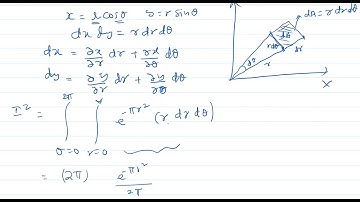 x = r cosθ   y = r sinθ
dx dy = r dr dθ
dx = ∂x/∂r dr + ∂x/∂θ dθ
dy = ∂y/∂r dr + ∂y/∂θ dθ
I² = ∫_{θ=0}^{2π} ∫_{r=0} e^{-πr²} (r dr dθ)
= (2π) e^{-πr²}/2π
dA = r dr dθ
dA
rdθ
dr
dθ
r
x